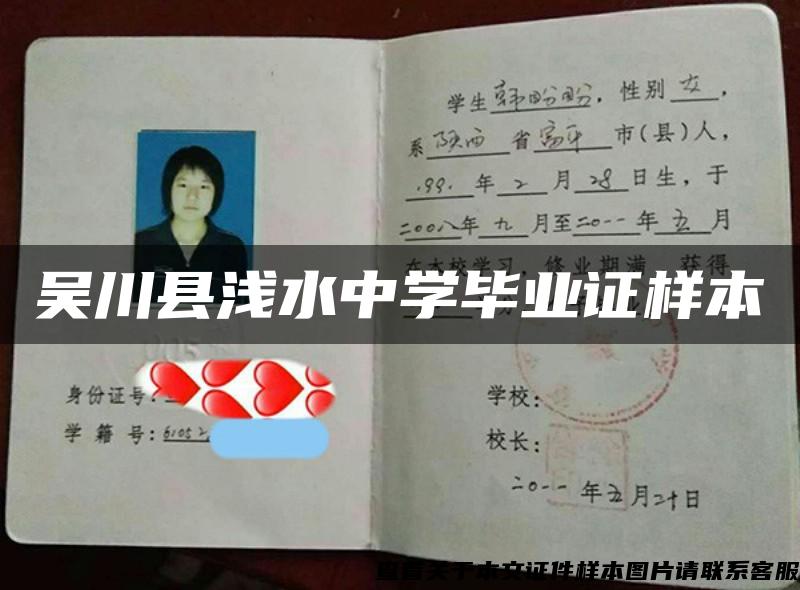 学生韩盼盼，性别女，
系陕西省富平市(县)人，
1991年2月28日生，于
二00八年九月至二0一一年五月
在本校学习，修业期满，获得
吴川县浅水中学毕业证样本
身份证号：
学籍号：61052
学校：
校长：
二0一一年五月二十日
查看关于本文证件样本图片请联系客服